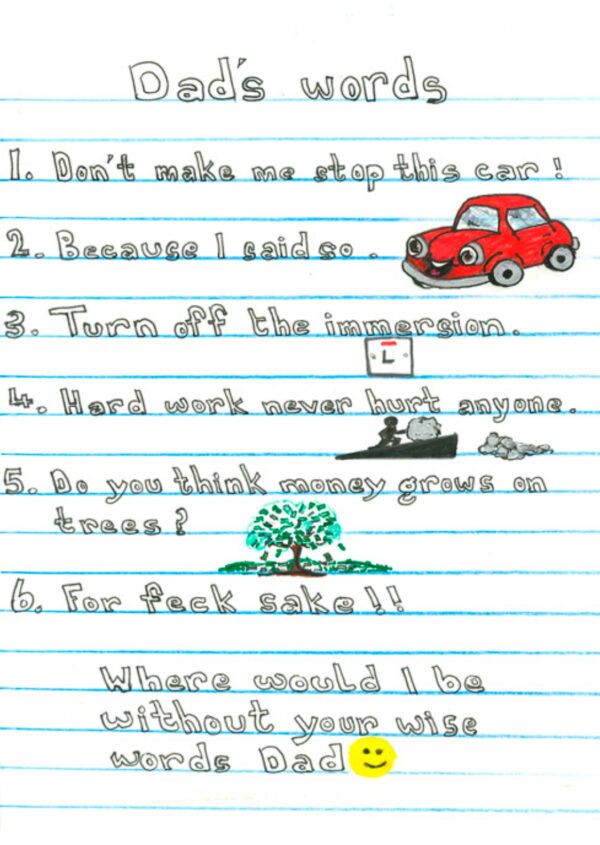 Dad's words
1. Don't make me stop this car!
2. Because I said so.
3. Turn off the immersion.
L
4. Hard work never hurt anyone.
5. Do you think money grows on
trees?
6. For feck sake!!
Where would I be
without your wise
words Dad